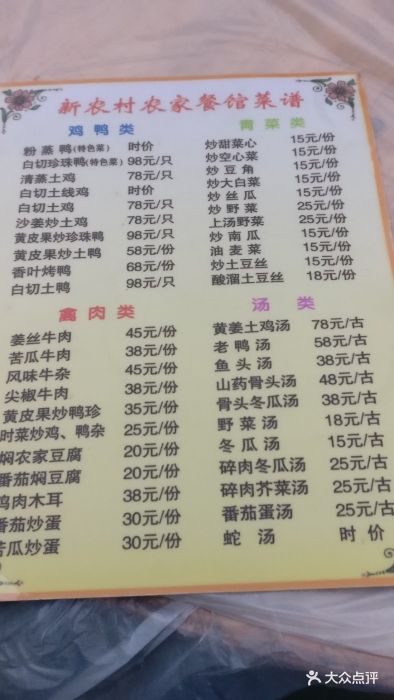 新农村农家餐馆菜谱
鸡鸭类
粉蒸鸭(特色菜) 时价
白切珍珠鸭(特色菜) 98元/只
清蒸土鸡 78元/只
白切土线鸡 时价
白切土鸡 78元/只
沙姜炒土鸡 78元/只
黄皮果炒珍珠鸭 98元/只
黄皮果炒土鸭 58元/份
香叶烤鸭 68元/份
白切土鸭 98元/只
青菜类
炒甜菜心 15元/份
炒空心菜 15元/份
炒豆角 15元/份
炒大白菜 15元/份
炒丝瓜 15元/份
炒野菜 25元/份
上汤野菜 25元/份
炒南瓜 15元/份
油麦菜 15元/份
炒土豆丝 15元/份
酸溜土豆丝 18元/份
禽肉类
姜丝牛肉 45元/份
苦瓜牛肉 38元/份
风味牛杂 45元/份
尖椒牛肉 38元/份
黄皮果炒鸭珍 35元/份
时菜炒鸡、鸭杂 25元/份
焖农家豆腐 20元/份
番茄焖豆腐 20元/份
鸡肉木耳 38元/份
番茄炒蛋 30元/份
苦瓜炒蛋 30元/份
汤类
黄姜土鸡汤 78元/古
老鸭汤 58元/古
鱼头汤 38元/古
山药骨头汤 48元/古
骨头冬瓜汤 38元/古
野菜汤 18元/古
冬瓜汤 15元/古
碎肉冬瓜汤 25元/古
碎肉芥菜汤 25元/古
番茄蛋汤 25元/古
蛇汤 时价
大众点评